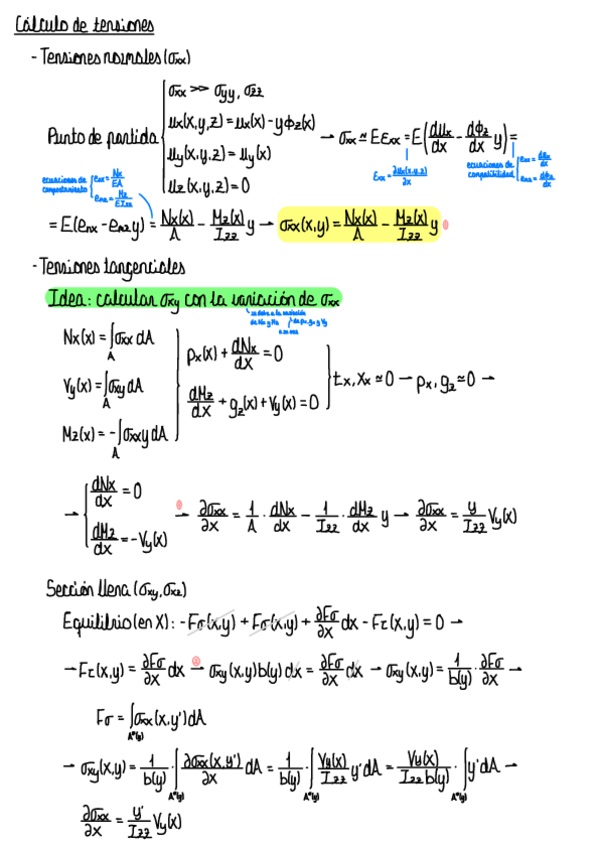 Cálculo de tensiones
- Tensiones normales (σxx)
Punto de partida { σxx >> σyy, σzz
ux(x,y,z) = ux(x) - yϕz(x)
uy(x,y,z) = uy(x)
uz(x,y,z) = 0
→ σxx ≃ Eεxx = E(dux/dx - dϕz/dx y) =
εxx = ∂ux(x,y,z)/∂x
ecuaciones de compatibilidad { enx = dux/dx
emz = dϕz/dx
ecuaciones de comportamiento { enx = Nx/EA
emz = Mz/EIzz
= E(enx - emzy) = Nx(x)/A - Mz(x)/Izz y → σxx(x,y) = Nx(x)/A - Mz(x)/Izz y
- Tensiones tangenciales
Idea: calcular σxy con la variación de σxx
se debe a la variación de Nx y Mz
Nx(x) = ∫A σxx dA
Vy(x) = ∫A σxy dA
Mz(x) = -∫A σxx y dA
px(x) + dNx/dx = 0
dMz/dx + gz(x) + Vy(x) = 0
} tx, Xx ≃ 0 → px, gz ≃ 0 →
→ { dNx/dx = 0
dMz/dx = -Vy(x)
→ ∂σxx/∂x = 1/A · dNx/dx - 1/Izz · dMz/dx y → ∂σxx/∂x = y/Izz Vy(x)
Sección llena (σxy, σxz)
Equilibrio (en X): -Fσ(x,y) + Fσ(x,y) + ∂Fσ/∂x dx - Fτ(x,y) = 0 →
→ Fτ(x,y) = ∂Fσ/∂x dx → σxy(x,y)b(y)dx = ∂Fσ/∂x dx → σxy(x,y) = 1/b(y) · ∂Fσ/∂x →
Fσ = ∫A*(y) σxx(x,y')dA
→ σxy(x,y) = 1/b(y) · ∫A*(y) ∂σxx(x,y')/∂x dA = 1/b(y) · ∫A*(y) Vy(x)/Izz y'dA = Vy(x)/Izz b(y) · ∫A*(y) y'dA →
∂σxx/∂x = y'/Izz Vy(x)